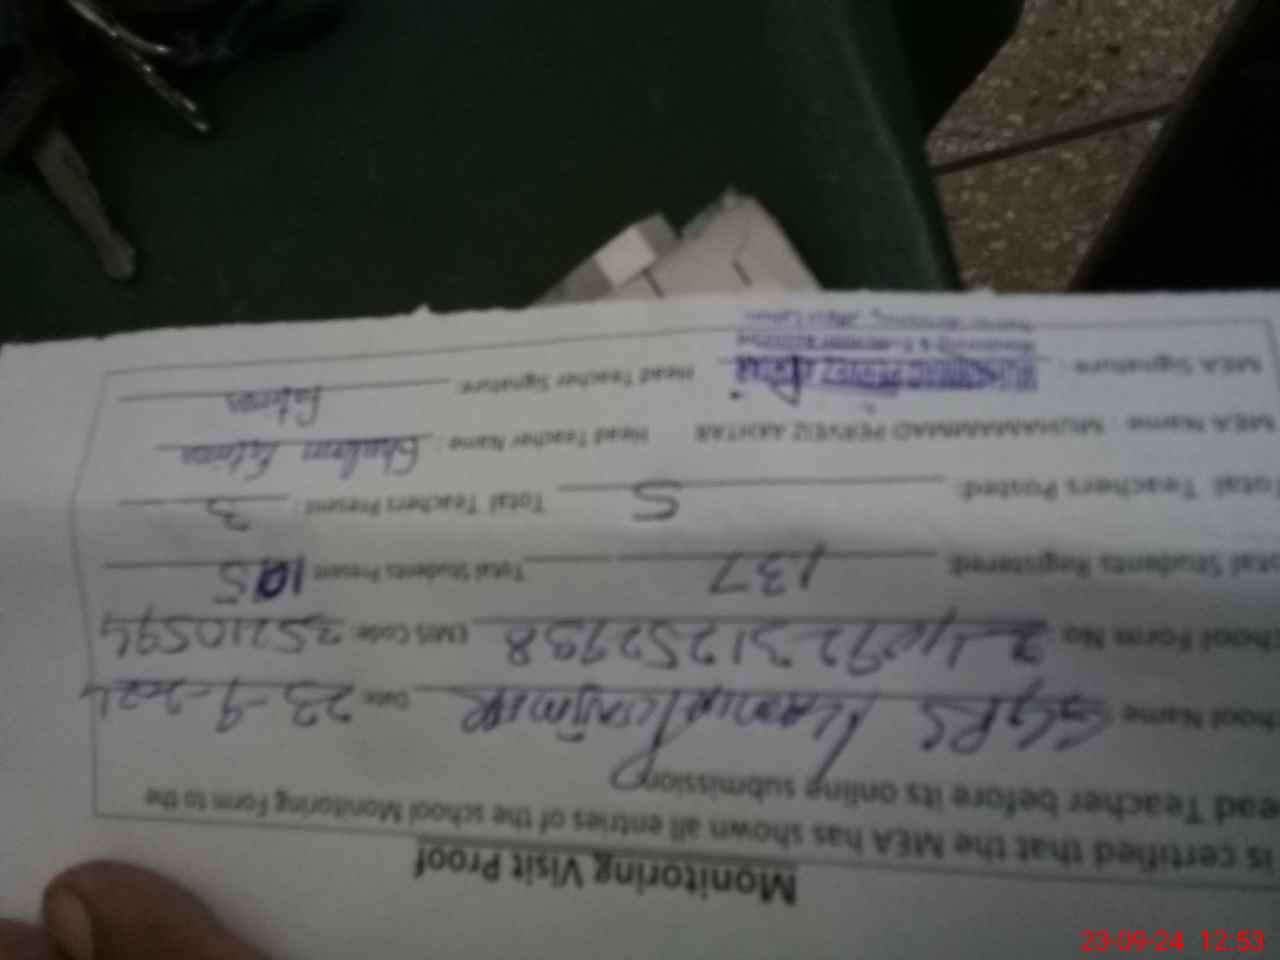 Monitoring Visit Proof
is certified that the MEA has shown all entries of the school Monitoring Form to the
ead Teacher before its online submission
hool Name GGPS Date: 23-9-2024
hool Form No EMIS Code: 35210594
otal Students Registered: 137 Total Students Present 105
Total Teachers Posted: 5 Total Teachers Present: 3
MEA Name : MUHAMAMMAD PERVEIZ AKHTAR Head Teacher Name : Ghulam Fatima
MEA Signature : Head Teacher Signature: Fatima
23-09-24 12:53